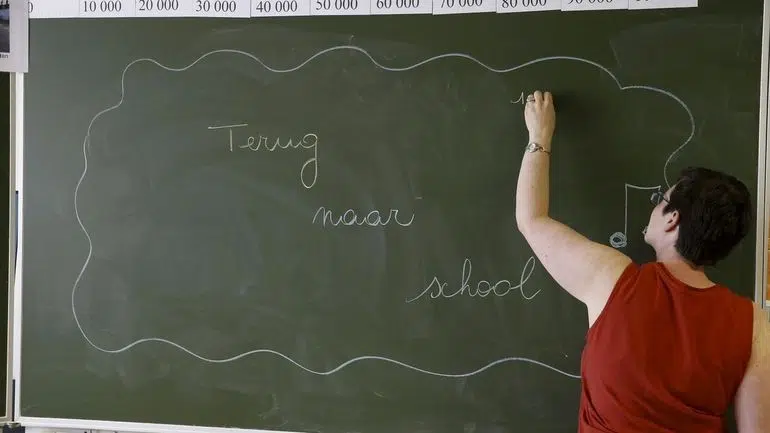 10 000 20 000 30 000 40 000 50 000 60 000 70 000 80 000
Terug
naar
school